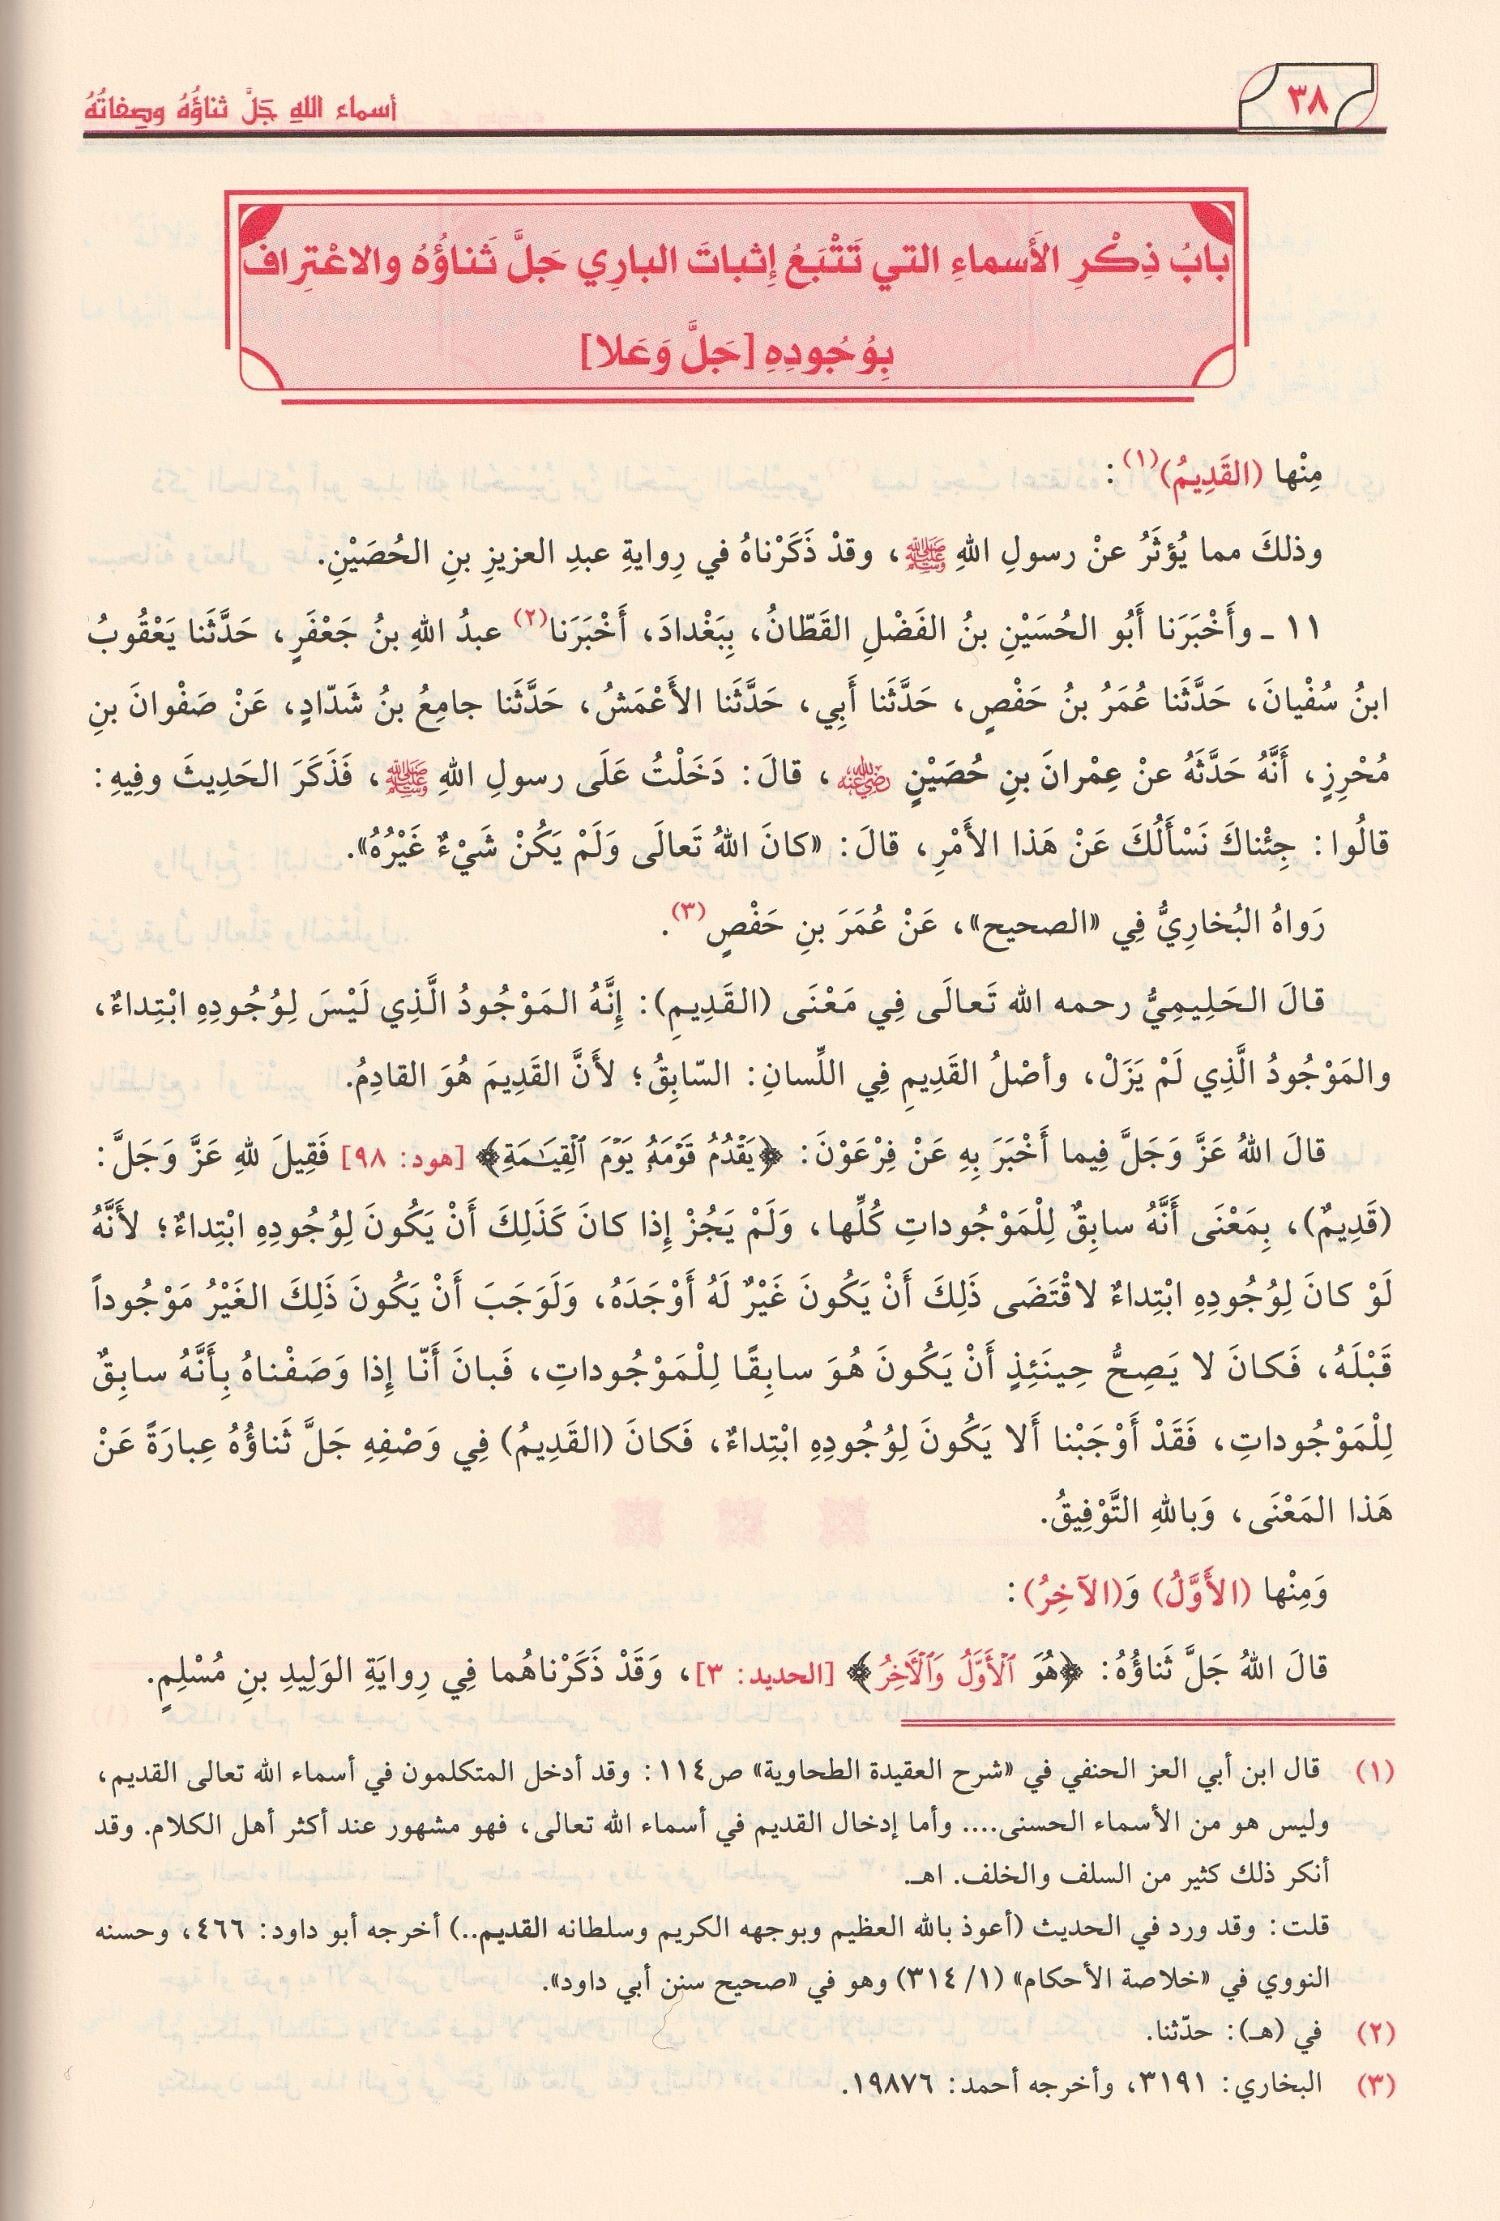 ٣٨
أسماء اللهِ جَلَّ ثناؤُهُ وصِفاتُهُ
بابُ ذِكْرِ الأَسماءِ التي تَتْبَعُ إِثباتَ الباري جَلَّ ثَناؤُهُ والاعْتِراف
بِوُجُودِهِ [جَلَّ وَعَلا]
مِنْها (القَدِيمُ)(١) :
وذلكَ مما يُؤثَرُ عنْ رسولِ اللهِ ﷺ، وقدْ ذَكَرْناهُ في رِوايةِ عبدِ العزيزِ بنِ الحُصَيْنِ.
١١ ـ وأَخْبَرَنا أَبُو الحُسَيْنِ بنُ الفَضْلِ القَطّانُ، بِبَغْدادَ، أَخْبَرَنا(٢) عبدُ اللهِ بنُ جَعْفَرٍ، حَدَّثَنا يَعْقُوبُ
ابنُ سُفْيانَ، حَدَّثَنا عُمَرُ بنُ حَفْصٍ، حَدَّثَنا أَبِي، حَدَّثَنا الأَعْمَشُ، حَدَّثَنا جامِعُ بنُ شَدّادٍ، عَنْ صَفْوانَ بنِ
مُحْرِزٍ، أَنَّهُ حَدَّثَهُ عنْ عِمْرانَ بنِ حُصَيْنٍ رضي الله عنه، قالَ: دَخَلْتُ عَلَى رسولِ اللهِ ﷺ، فَذَكَرَ الحَدِيثَ وفِيهِ:
قالُوا: جِئْناكَ نَسْأَلُكَ عَنْ هَذا الأَمْرِ، قالَ: «كانَ اللهُ تَعالَى وَلَمْ يَكُنْ شَيْءٌ غَيْرُهُ».
رَواهُ البُخارِيُّ فِي «الصحيح»، عَنْ عُمَرَ بنِ حَفْصٍ(٣).
قالَ الحَلِيمِيُّ رحمه الله تَعالَى فِي مَعْنَى (القَدِيمِ): إِنَّهُ المَوْجُودُ الَّذِي لَيْسَ لِوُجُودِهِ ابْتِداءٌ،
والمَوْجُودُ الَّذِي لَمْ يَزَلْ، وأصْلُ القَدِيمِ فِي اللِّسانِ: السّابِقُ؛ لأَنَّ القَدِيمَ هُوَ القادِمُ.
قالَ اللهُ عَزَّ وَجَلَّ فِيما أَخْبَرَ بِهِ عَنْ فِرْعَوْنَ: ﴿يَقْدُمُ قَوْمَهُۥ يَوْمَ ٱلْقِيَٰمَةِ﴾ [هود: ٩٨] فَقِيلَ للهِ عَزَّ وَجَلَّ:
(قَدِيمٌ)، بِمَعْنَى أَنَّهُ سابِقٌ لِلْمَوْجُوداتِ كُلِّها، وَلَمْ يَجُزْ إِذا كانَ كَذَلِكَ أَنْ يَكُونَ لِوُجُودِهِ ابْتِداءٌ؛ لأَنَّهُ
لَوْ كانَ لِوُجُودِهِ ابْتِداءٌ لاقْتَضَى ذَلِكَ أَنْ يَكُونَ غَيْرٌ لَهُ أَوْجَدَهُ، وَلَوَجَبَ أَنْ يَكُونَ ذَلِكَ الغَيْرُ مَوْجُوداً
قَبْلَهُ، فَكانَ لا يَصِحُّ حِينَئِذٍ أَنْ يَكُونَ هُوَ سابِقًا لِلْمَوْجُوداتِ، فَبانَ أَنّا إِذا وَصَفْناهُ بِأَنَّهُ سابِقٌ
لِلْمَوْجُوداتِ، فَقَدْ أَوْجَبْنا أَلا يَكُونَ لِوُجُودِهِ ابْتِداءٌ، فَكانَ (القَدِيمُ) فِي وَصْفِهِ جَلَّ ثَناؤُهُ عِبارَةً عَنْ
هَذا المَعْنَى، وَباللهِ التَّوْفِيقُ.
وَمِنْها (الأَوَّلُ) وَ(الآخِرُ):
قالَ اللهُ جَلَّ ثَناؤُهُ: ﴿هُوَ ٱلْأَوَّلُ وَٱلْآخِرُ﴾ [الحديد: ٣]، وَقَدْ ذَكَرْناهُما فِي رِوايَةِ الوَلِيدِ بنِ مُسْلِمٍ.
(١) قال ابن أبي العز الحنفي في «شرح العقيدة الطحاوية» ص١١٤: وقد أدخل المتكلمون في أسماء الله تعالى القديم،
وليس هو من الأسماء الحسنى.... وأما إدخال القديم في أسماء الله تعالى، فهو مشهور عند أكثر أهل الكلام. وقد
أنكر ذلك كثير من السلف والخلف. اهـ.
قلت: وقد ورد في الحديث (أعوذ بالله العظيم وبوجهه الكريم وسلطانه القديم..) أخرجه أبو داود: ٤٦٦، وحسنه
النووي في «خلاصة الأحكام» (١/ ٣١٤) وهو في «صحيح سنن أبي داود».
(٢) في (هـ): حدّثنا.
(٣) البخاري: ٣١٩١، وأخرجه أحمد: ١٩٨٧٦.